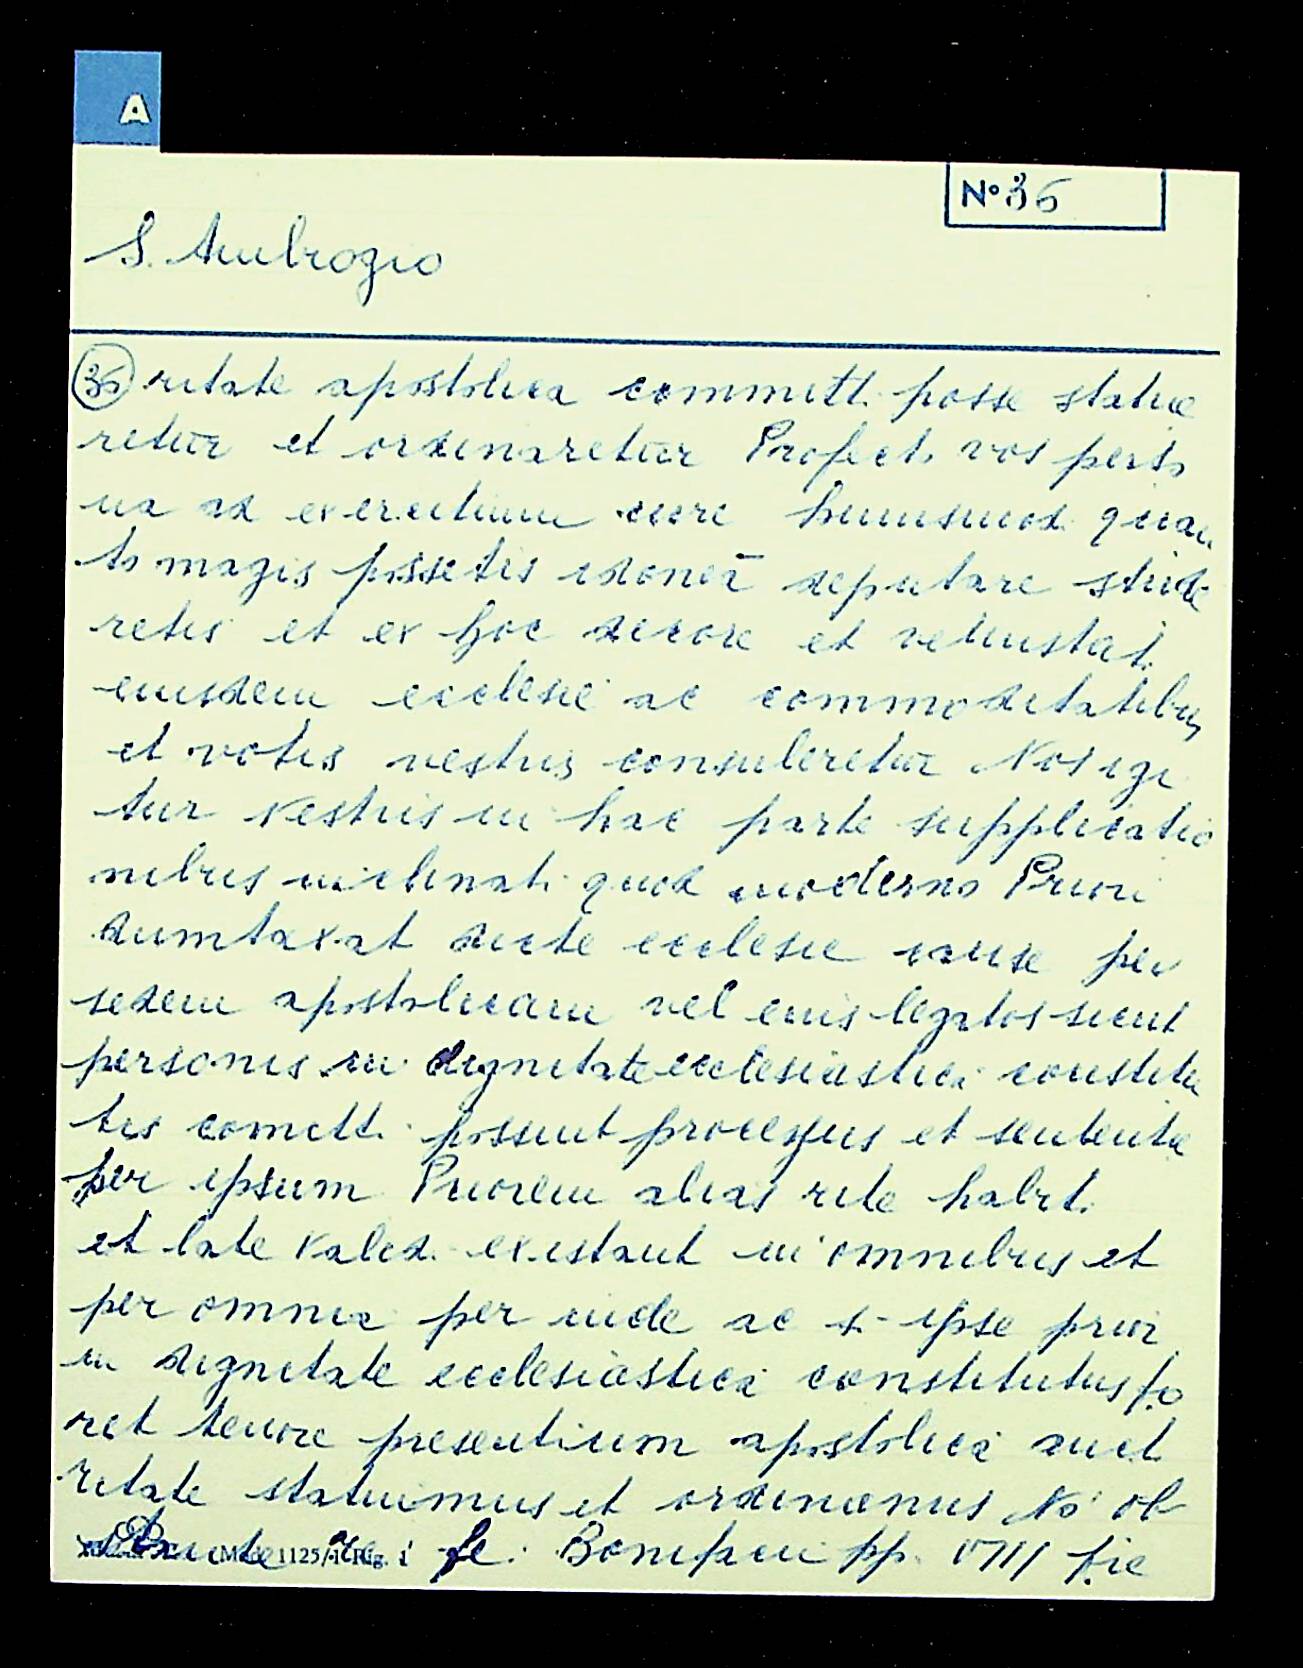 A
N° 36
S. Ambrogio
36 ritate apostolica committ. posse statue
retur et ordinaretur Profect. vos perso
na ad exercitium cure huiusmod. quan
to magis possetis idoneā deputare stude
retis et ex hoc decore et venustat.
eiusdem ecclesie ac commoditatibus
et votis vestris consuleretur Nos igi
tur vestris in hac parte supplicatio
nibus inclinati quod moderno Priori
dumtaxat dicte ecclesie cause per
sedem apostolicam vel eius legatos sicut
personis in dignitate ecclesiastica constitu
tis comitti possint processus et sententie
per ipsum Priorem alias rite habit.
et late valid. existant in omnibus et
per omnia per inde ac si ipse prior
in dignitate ecclesiastica constitutus fo
ret tenore presentium apostolica auct
ritate statuimus et ordinamus No ob
stante fe. Bonifacii pp. VIII pie
Mod. 1125/ Rig. 1